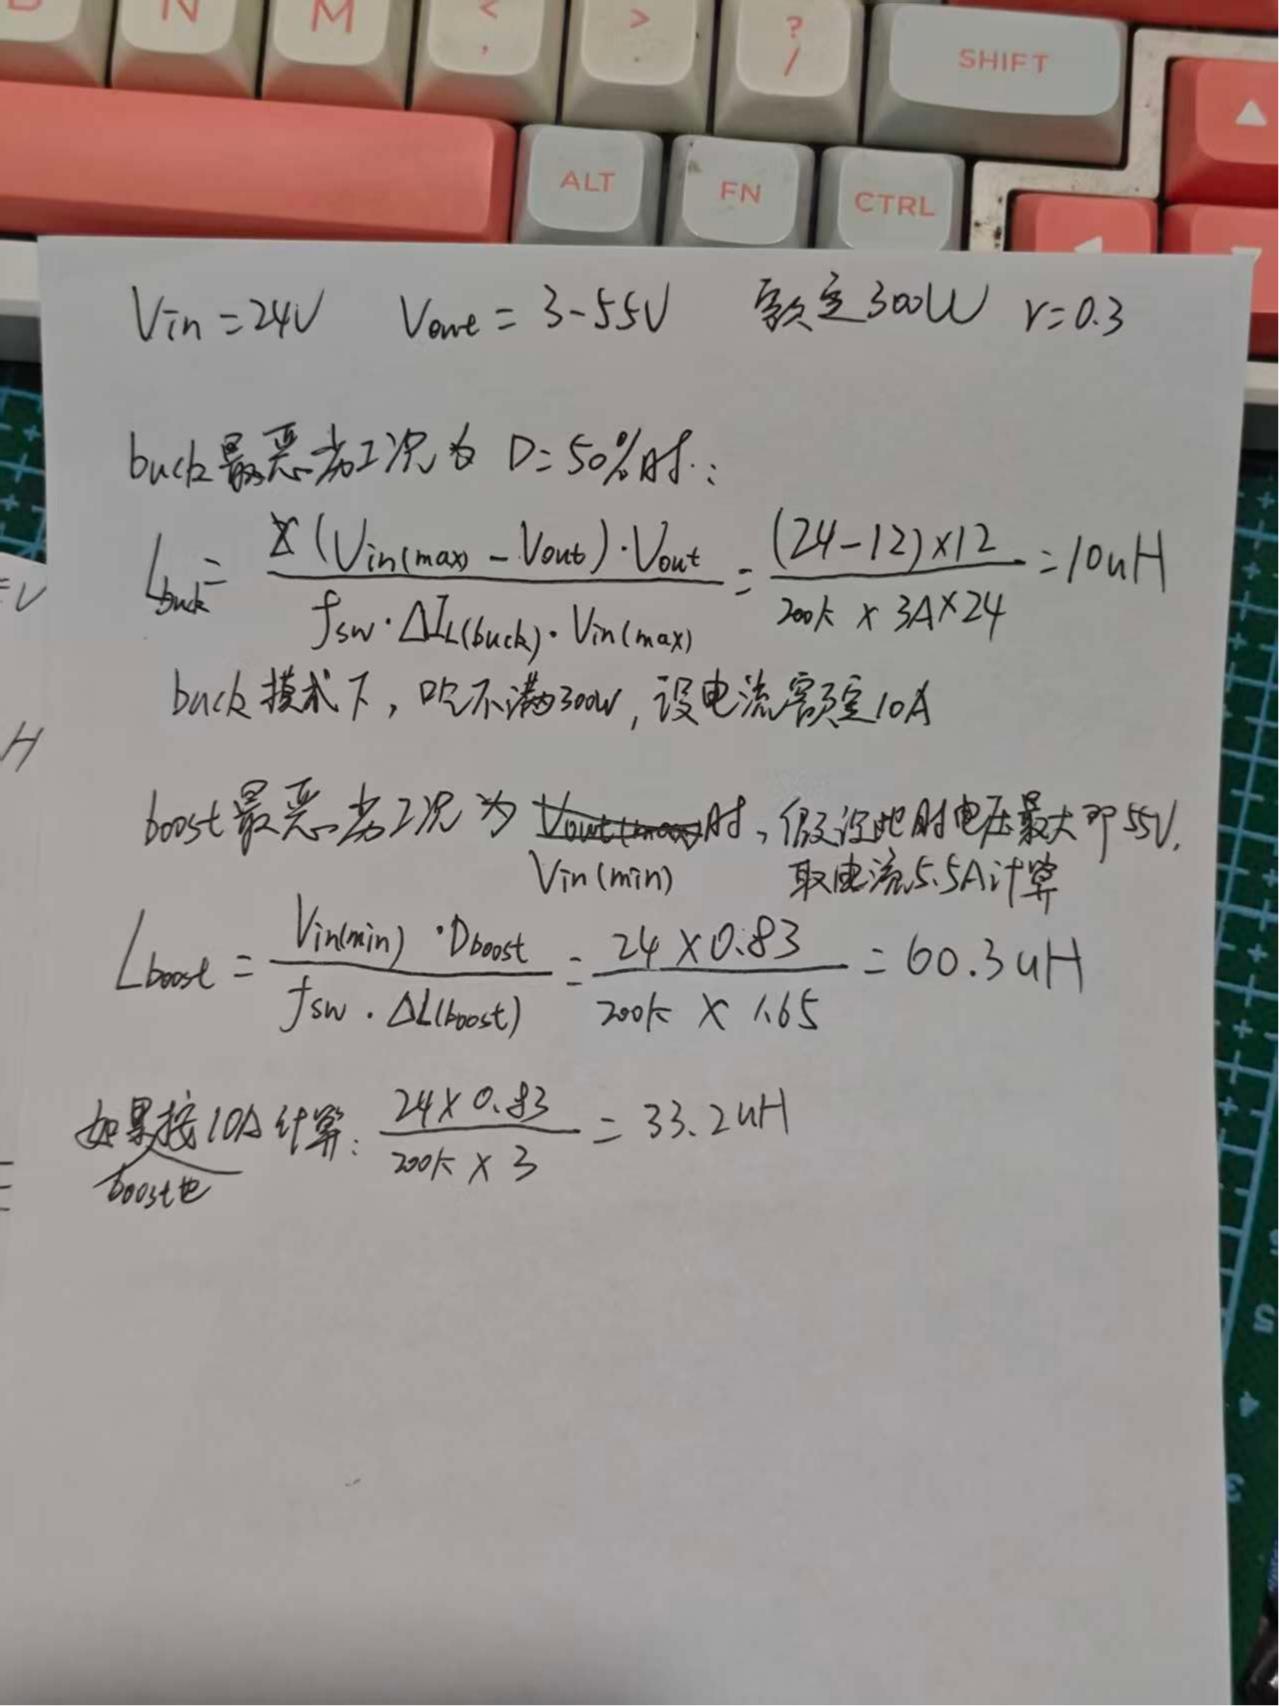 N M < , > . ? / SHIFT
ALT FN CTRL
Vin=24V Vout=3-55V 额定300W r=0.3
buck最恶劣工况为 D=50%时:
Lbuck= (Vin(max) - Vout)·Vout / fsw·ΔIL(buck)·Vin(max) = (24-12)×12 / 200k × 3A×24 =10uH
buck模式下，吃不满300W, 设电流额定10A
boost最恶劣工况为 Vout(max)时, 假设此时电压最大即55V,
Vin(min) 取电流5.5A计算
Lboost = Vin(min)·Dboost / fsw·ΔL(boost) = 24×0.83 / 200k × 1.65 = 60.3uH
如果按10A计算: 24×0.83 / 200k × 3 = 33.2uH
boost也
V
H
5
4
3